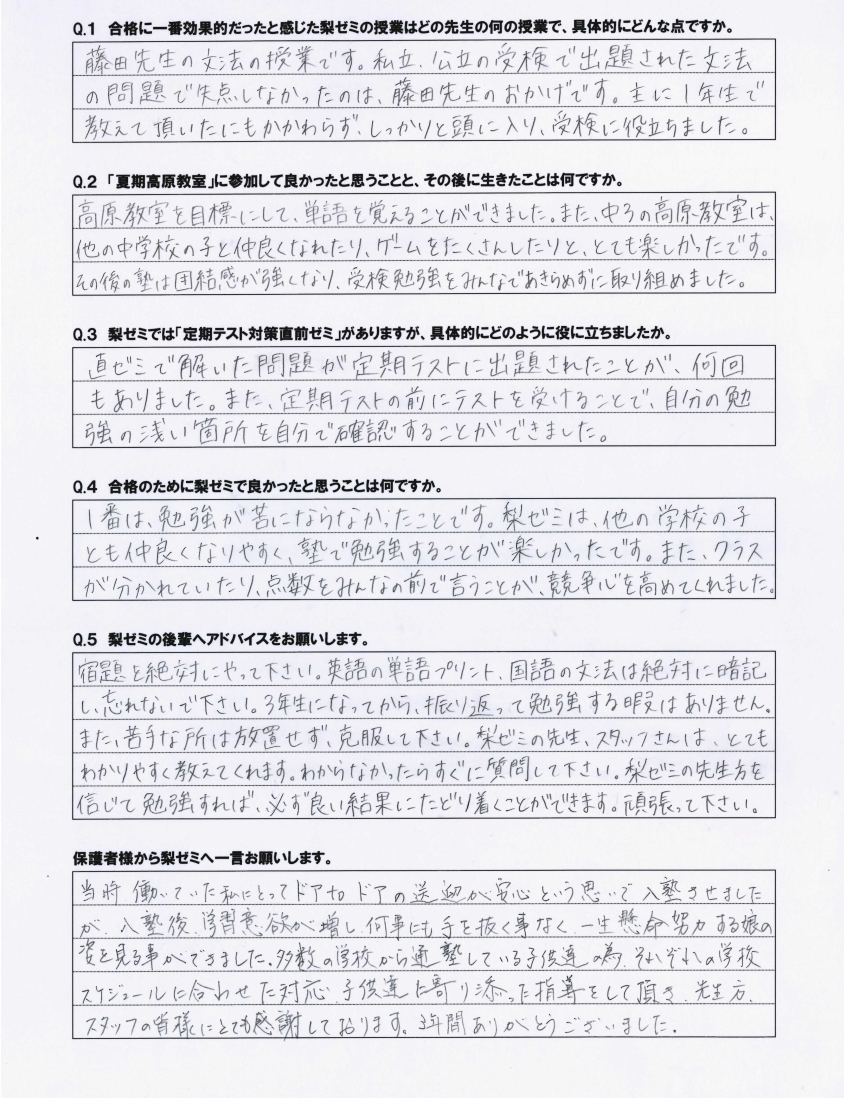 Q.1 合格に一番効果的だったと感じた梨ゼミの授業はどの先生の何の授業で、具体的にどんな点ですか。
藤田先生の文法の授業です。私立、公立の受検で出題された文法
の問題で失点しなかったのは、藤田先生のおかげです。主に1年生で
教えて頂いたにもかかわらず、しっかりと頭に入り、受検に役立ちました。
Q.2 「夏期高原教室」に参加して良かったと思うことと、その後に生きたことは何ですか。
高原教室を目標にして、単語を覚えることができました。また、中3の高原教室は、
他の中学校の子と仲良くなれたり、ゲームをたくさんしたりと、とても楽しかったです。
その後の塾は団結感が強くなり、受検勉強をみんなであきらめずに取り組めました。
Q.3 梨ゼミでは「定期テスト対策直前ゼミ」がありますが、具体的にどのように役に立ちましたか。
直ゼミで解いた問題が定期テストに出題されたことが、何回
もありました。また、定期テストの前にテストを受けることで、自分の勉
強の浅い箇所を自分で確認することができました。
Q.4 合格のために梨ゼミで良かったと思うことは何ですか。
1番は、勉強が苦にならなかったことです。梨ゼミは、他の学校の子
とも仲良くなりやすく、塾で勉強することが楽しかったです。また、クラス
が分かれていたり、点数をみんなの前で言うことが、競争心を高めてくれました。
Q.5 梨ゼミの後輩へアドバイスをお願いします。
宿題を絶対にやって下さい。英語の単語プリント、国語の文法は絶対に暗記
し、忘れないで下さい。3年生になってから、振り返って勉強する暇はありません。
また、苦手な所は放置せず、克服して下さい。梨ゼミの先生、スタッフさんは、とても
わかりやすく教えてくれます。わからなかったらすぐに質問して下さい。梨ゼミの先生方を
信じて勉強すれば、必ず良い結果にたどり着くことができます。頑張って下さい。
保護者様から梨ゼミへ一言お願いします。
当時働いていた私にとってドアtoドアの送迎が安心という思いで入塾させました
が、入塾後、学習意欲が増し、何事にも手を抜く事なく、一生懸命努力する娘の
姿を見る事ができました。多数の学校から通塾している子供達の為、それぞれの学校
スケジュールに合わせた対応、子供達に寄り添った指導をして頂き、先生方、
スタッフの皆様にとても感謝しております。3年間ありがとうございました。